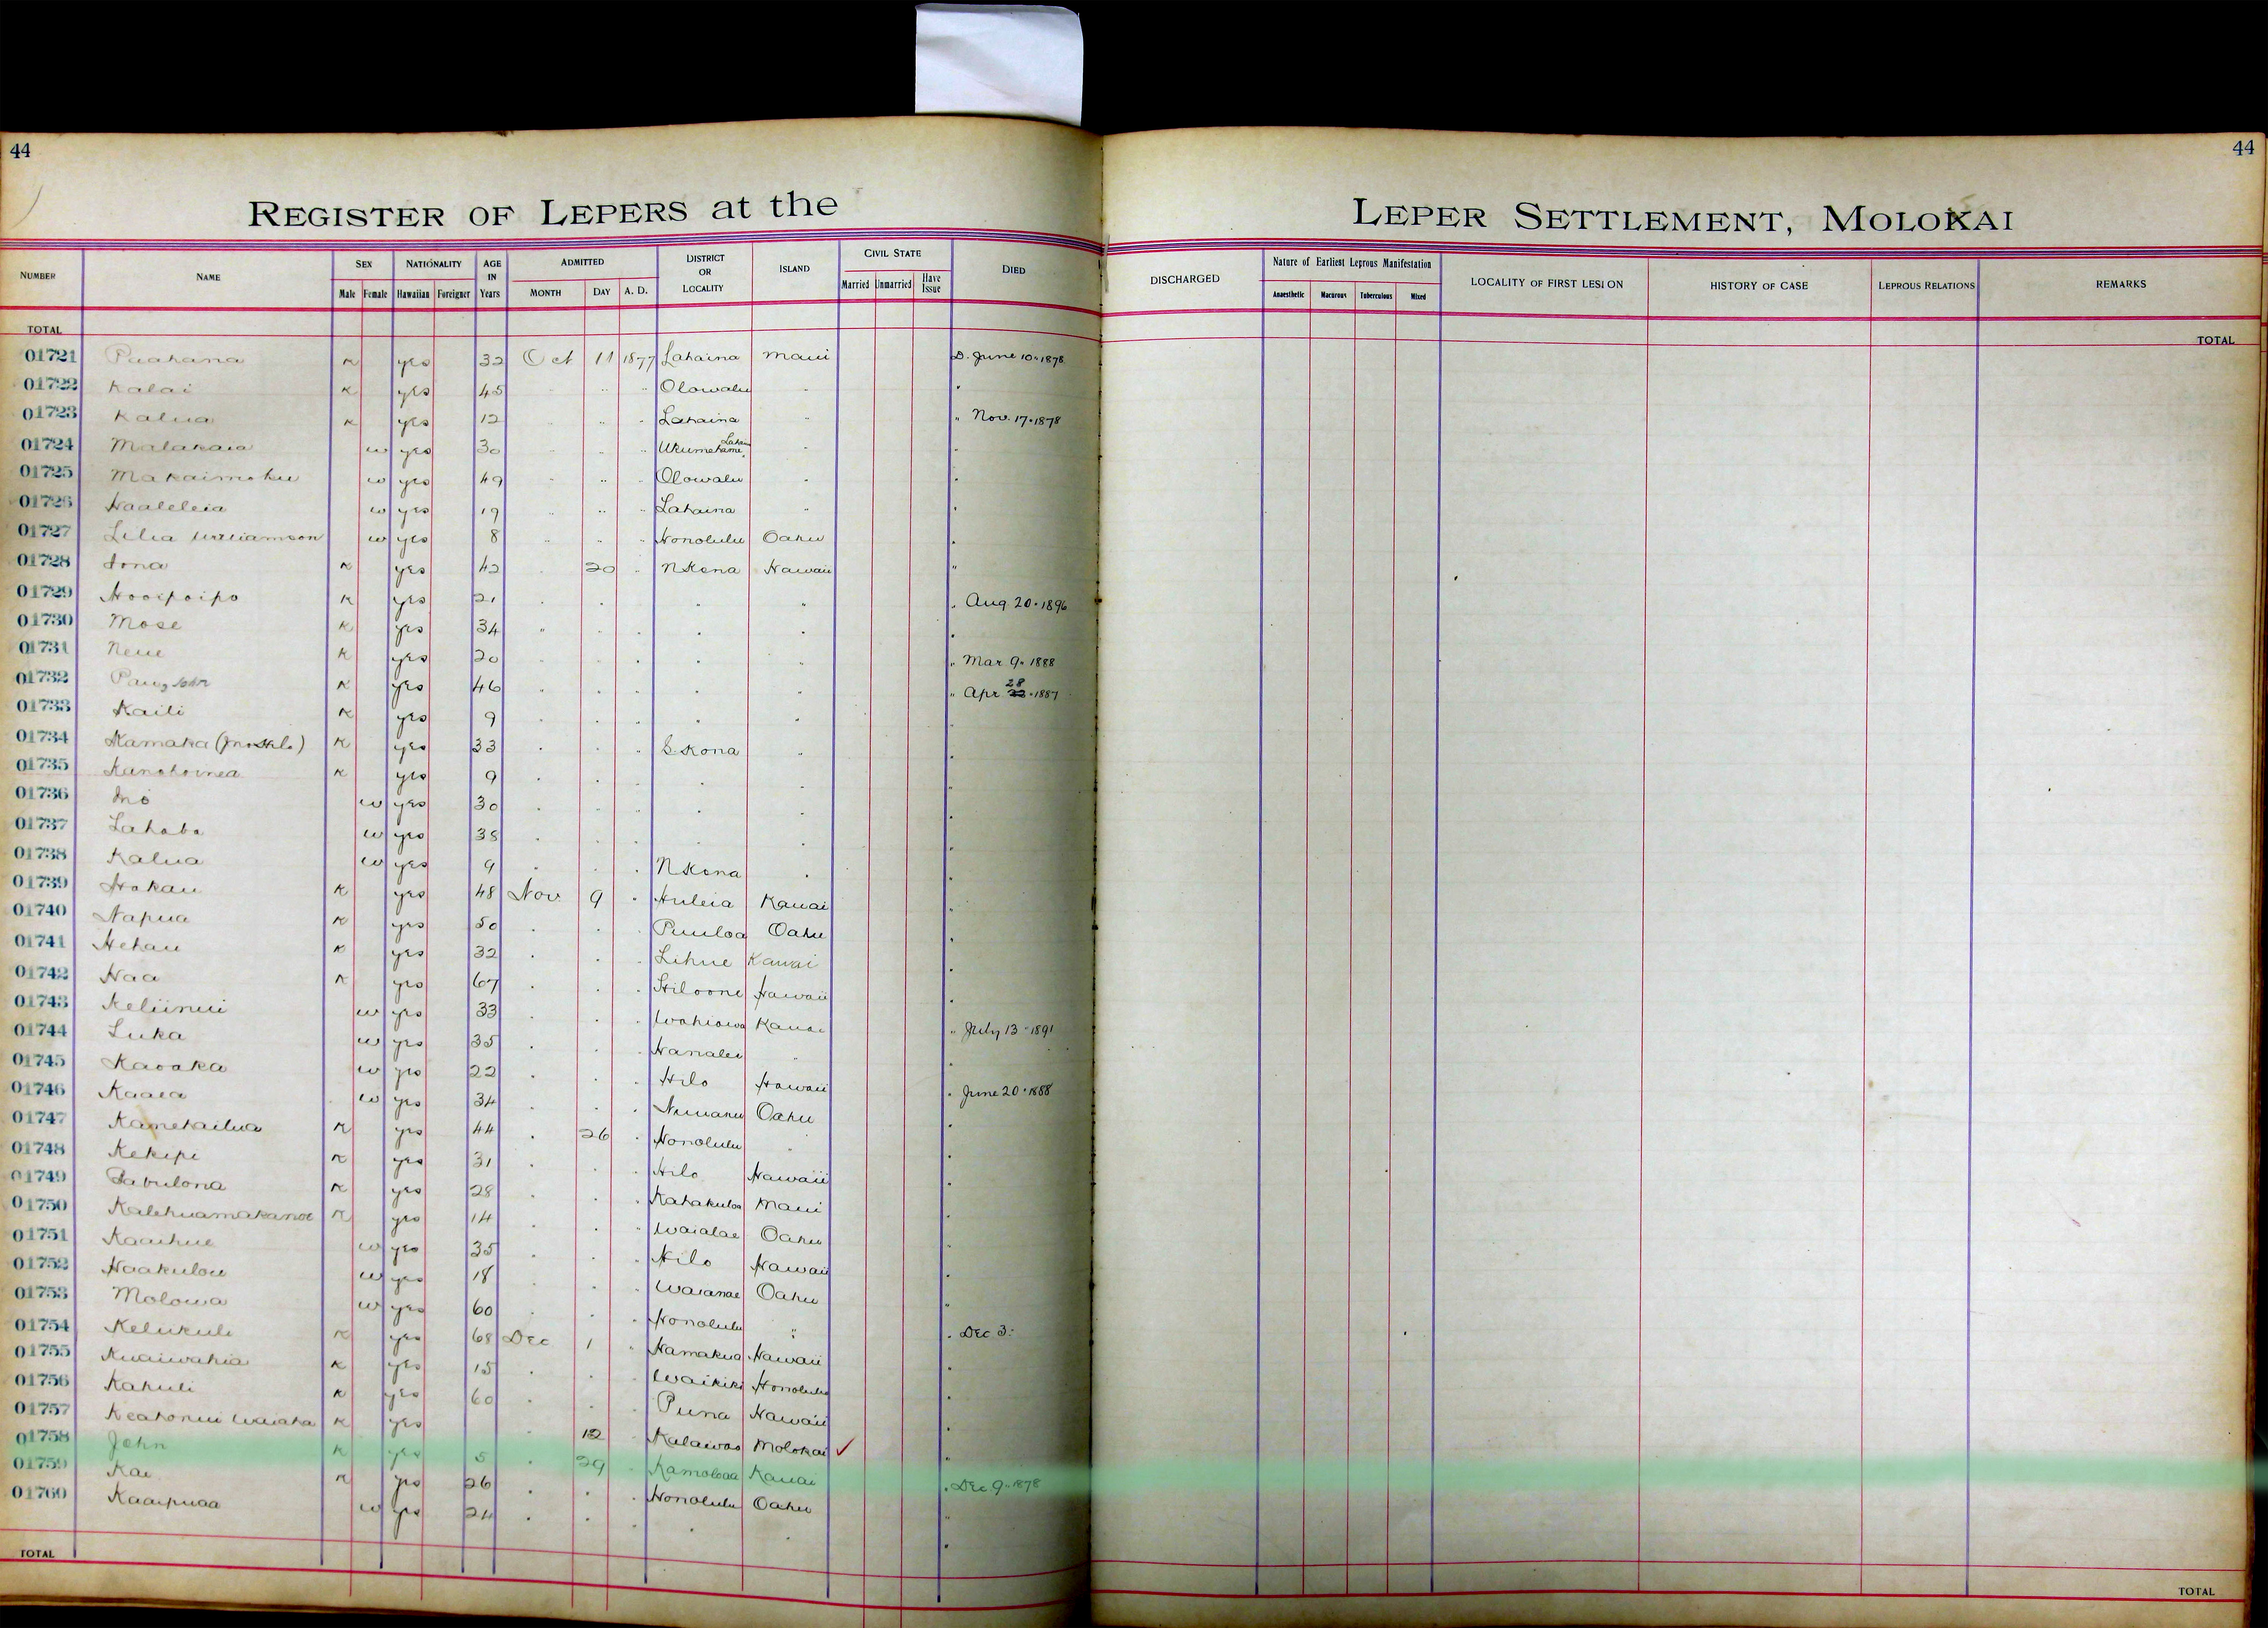 44
44
REGISTER OF LEPERS at the LEPER SETTLEMENT, MOLOKAI
NUMBER NAME SEX NATIONALITY AGE IN Years ADMITTED DISTRICT OR LOCALITY ISLAND CIVIL STATE DIED DISCHARGED Nature of Earliest Leprous Manifestation LOCALITY OF FIRST LESION HISTORY OF CASE LEPROUS RELATIONS REMARKS
Male Female Hawaiian Foreigner MONTH DAY A. D. Married Unmarried Have Issue Anaesthetic Macurous Tuberculous Mixed
TOTAL TOTAL
01721 Puahana K yes 32 Oct 11 1877 Lahaina Maui D. June 10 " 1878
01722 Kalai K yes 45 " " Olowalu " "
01723 Kalua K yes 12 " " " Lahaina " " Nov. 17 " 1878
01724 Malakaia w yes 30 " " " Ukumehame, " "
01725 Makaimoku w yes 49 " " " Olowalu " "
01726 Haaleleia w yes 19 " " " Lahaina " "
01727 Lilia Williamson w yes 8 " " " Honolulu Oahu "
01728 Iona K yes 42 " 20 " N Kona Hawaii "
01729 Hooipoipo K yes 21 " " " " " Aug. 20 " 1896
01730 Mose K yes 34 " " " " " "
01731 Neue K yes 20 " " " " " " Mar 9 " 1888
01732 John K yes 46 " " " " " " Apr 28 " 1887
01733 Kaili K yes 9 " " " " " "
01734 Kamaka K yes 33 " " " S. Kona " "
01735 K yes 9 " " " " "
01736 w yes 30 " " " " " "
01737 w yes 38 " " " " "
01738 Kalua w yes 9 " " " N Kona " "
01739 Hokau K yes 48 Nov 9 " Huleia Kauai "
01740 Napua K yes 50 " " " Puuloa Oahu "
01741 Hehau K yes 32 " " " Lihue Kauai "
01742 Naa K yes 67 " " " Hiloone Hawaii "
01743 Keliinui w yes 33 " " " Wahiawa Kauai " July 13 " 1891
01744 Luka w yes 35 " " " Hanalei " "
01745 Kaoaka w yes 22 " " " Hilo Hawaii " June 20 " 1888
01746 Kaaea w yes 34 " " " Nuuanu Oahu "
01747 Kamekailua K yes 44 " 26 " Honolulu " "
01748 Kekipi K yes 31 " " " Hilo Hawaii "
01749 Zabulona K yes 28 " " " Kahakuloa Maui "
01750 Kalehuamakanoe K yes 14 " " " Waialae Oahu "
01751 Kaaihue w yes 35 " " " Hilo Hawaii "
01752 Haakulou w yes 18 " " " Waianae Oahu "
01753 Molowa w yes 60 " " " Honolulu " " Dec 3.
01754 Kelukuli K yes 68 Dec 1 " Hamakua Hawaii "
01755 Kuaiwahia K yes 15 " " Waikiki Honolulu "
01756 Kahuli K yes 60 " " Puna Hawaii "
01757 Keahonui Waiaha K yes " 12 Kalawao Molokai ✓ "
01758 John K yes 5 " 29 " Kamoloaa Kauai " Dec 9 " 1878
01759 Kai K yes 26 " " " Honolulu Oahu "
01760 Kaaipuaa w yes 24 " " " " " "
TOTAL TOTAL